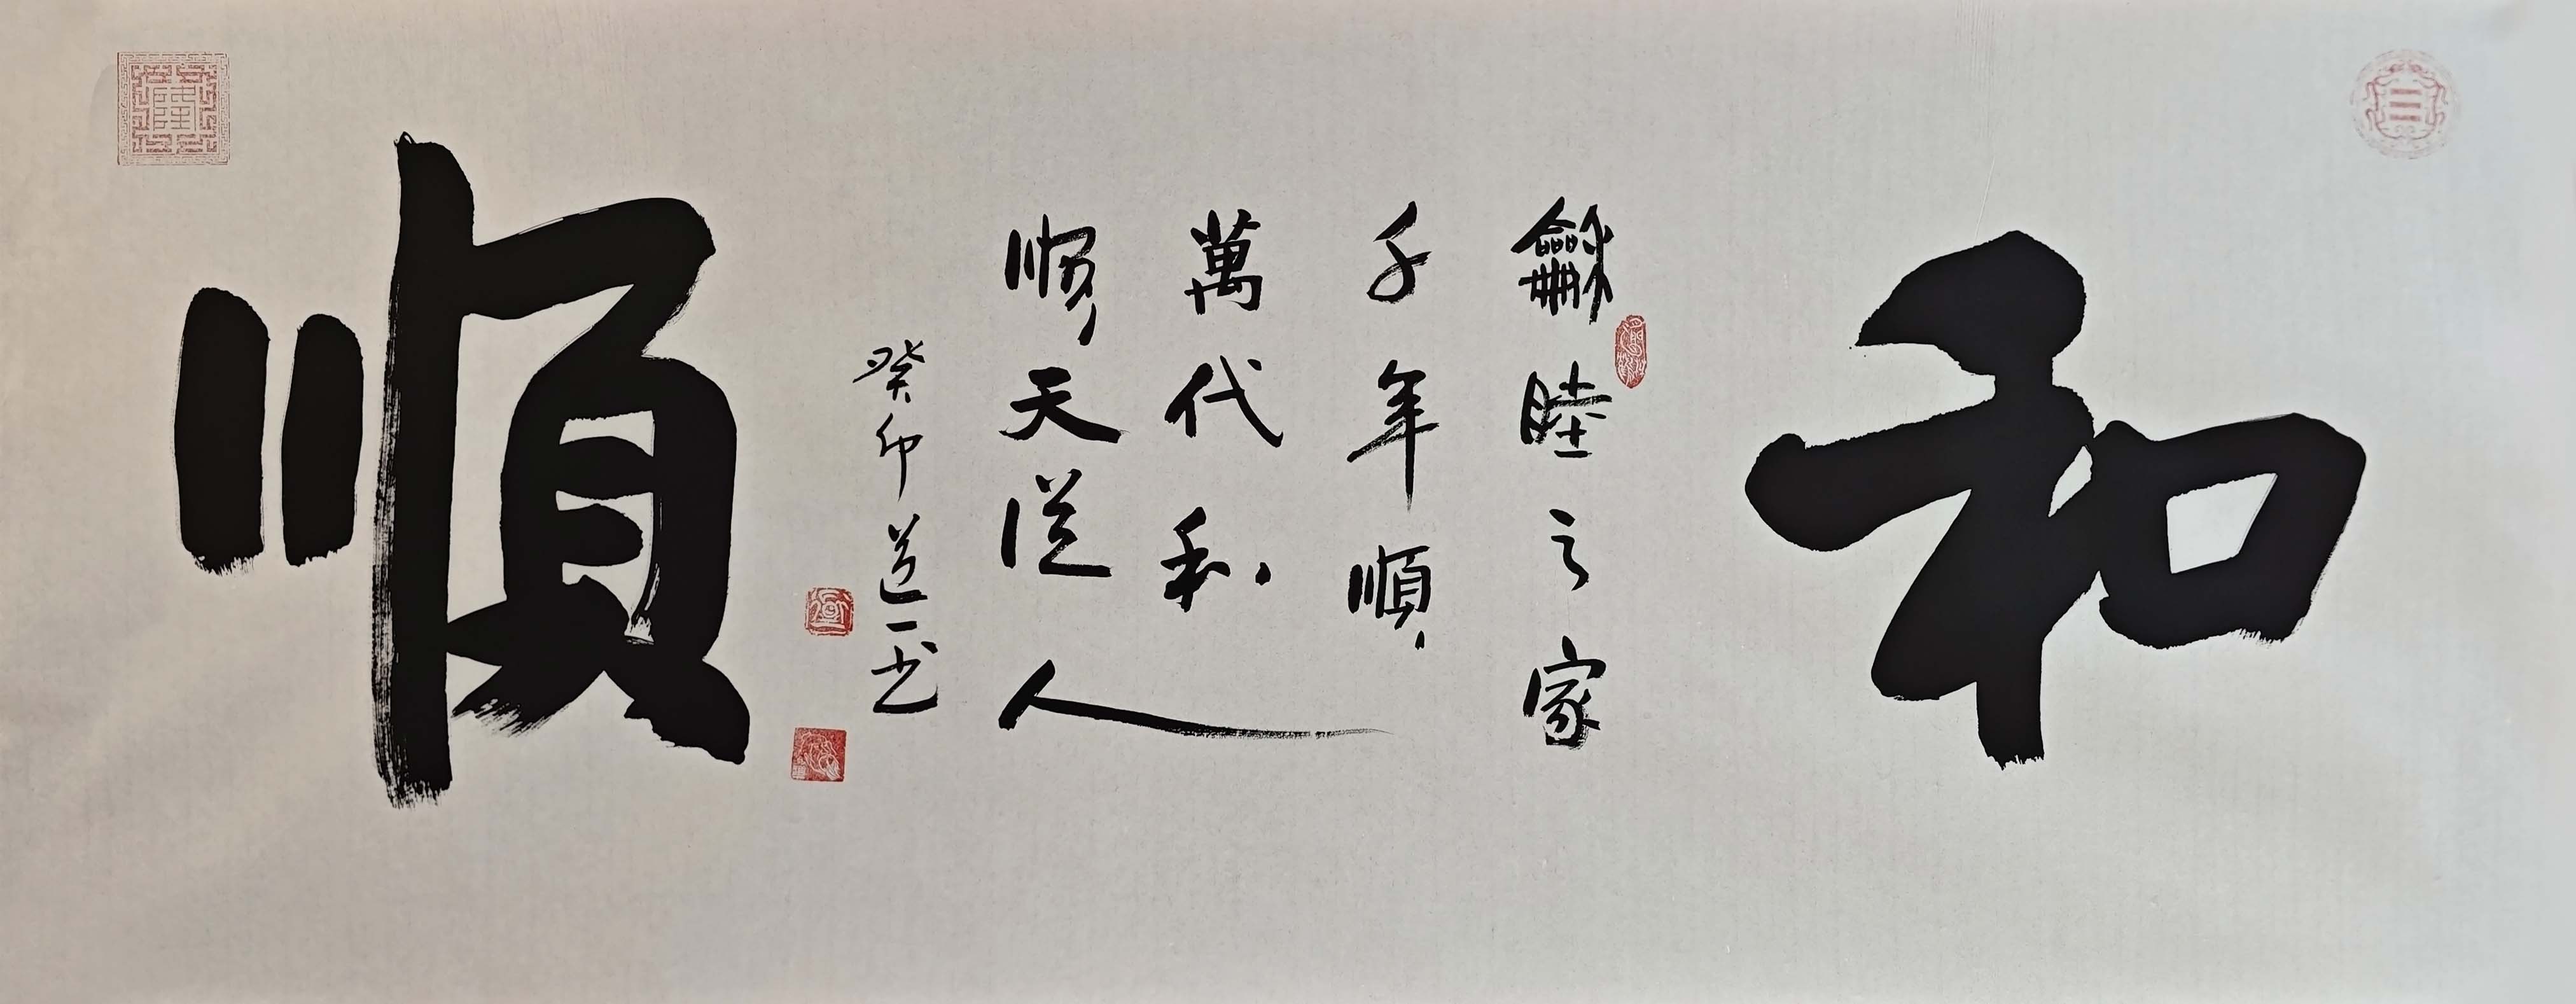 和
龢睦之家
千年順
萬代和
順天從人
癸卯道一书
順